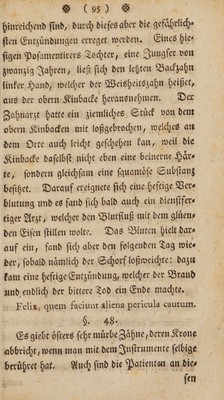 ( 95 )
hinreichend sind, durch dieses aber die gefährlich-
sten Entzündungen erreget werden. Eines hie-
sigen Posamentirers Tochter, eine Jungfer von
zwanzig Jahren, ließ sich den letzten Backzahn
linker Hand, welcher der Weisheitszahn heißet,
aus der obern Kinbacke herausnehmen. Der
Zahnarzt hatte ein ziemliches Stück von dem
obern Kinbacken mit loßgebrochen, welches an
dem Orte auch leicht geschehen kan, weil die
Kinbacke daselbst nicht eben eine beinerne Här-
te, sondern gleichsam eine squamöse Substanz
besitzet. Darauf ereignete sich eine heftige Ver-
blutung und es fand sich bald auch ein dienstfer-
tiger Arzt, welcher den Blutfluß mit dem glüen-
den Eisen stillen wolte. Das Bluten hielt dar-
auf ein, fand sich aber den folgenden Tag wie-
der, sobald nämlich der Schorf loßweichte: dazu
kam eine heftige Entzündung, welcher der Brand
und endlich der bittere Tod ein Ende machte.
Felix, quem faciunt aliena pericula cautum.
§. 48.
Es giebt öfters sehr mürbe Zähne, deren Krone
abbricht, wenn man mit dem Instrumente selbige
berühret hat. Auch sind die Patienten an die-
sen